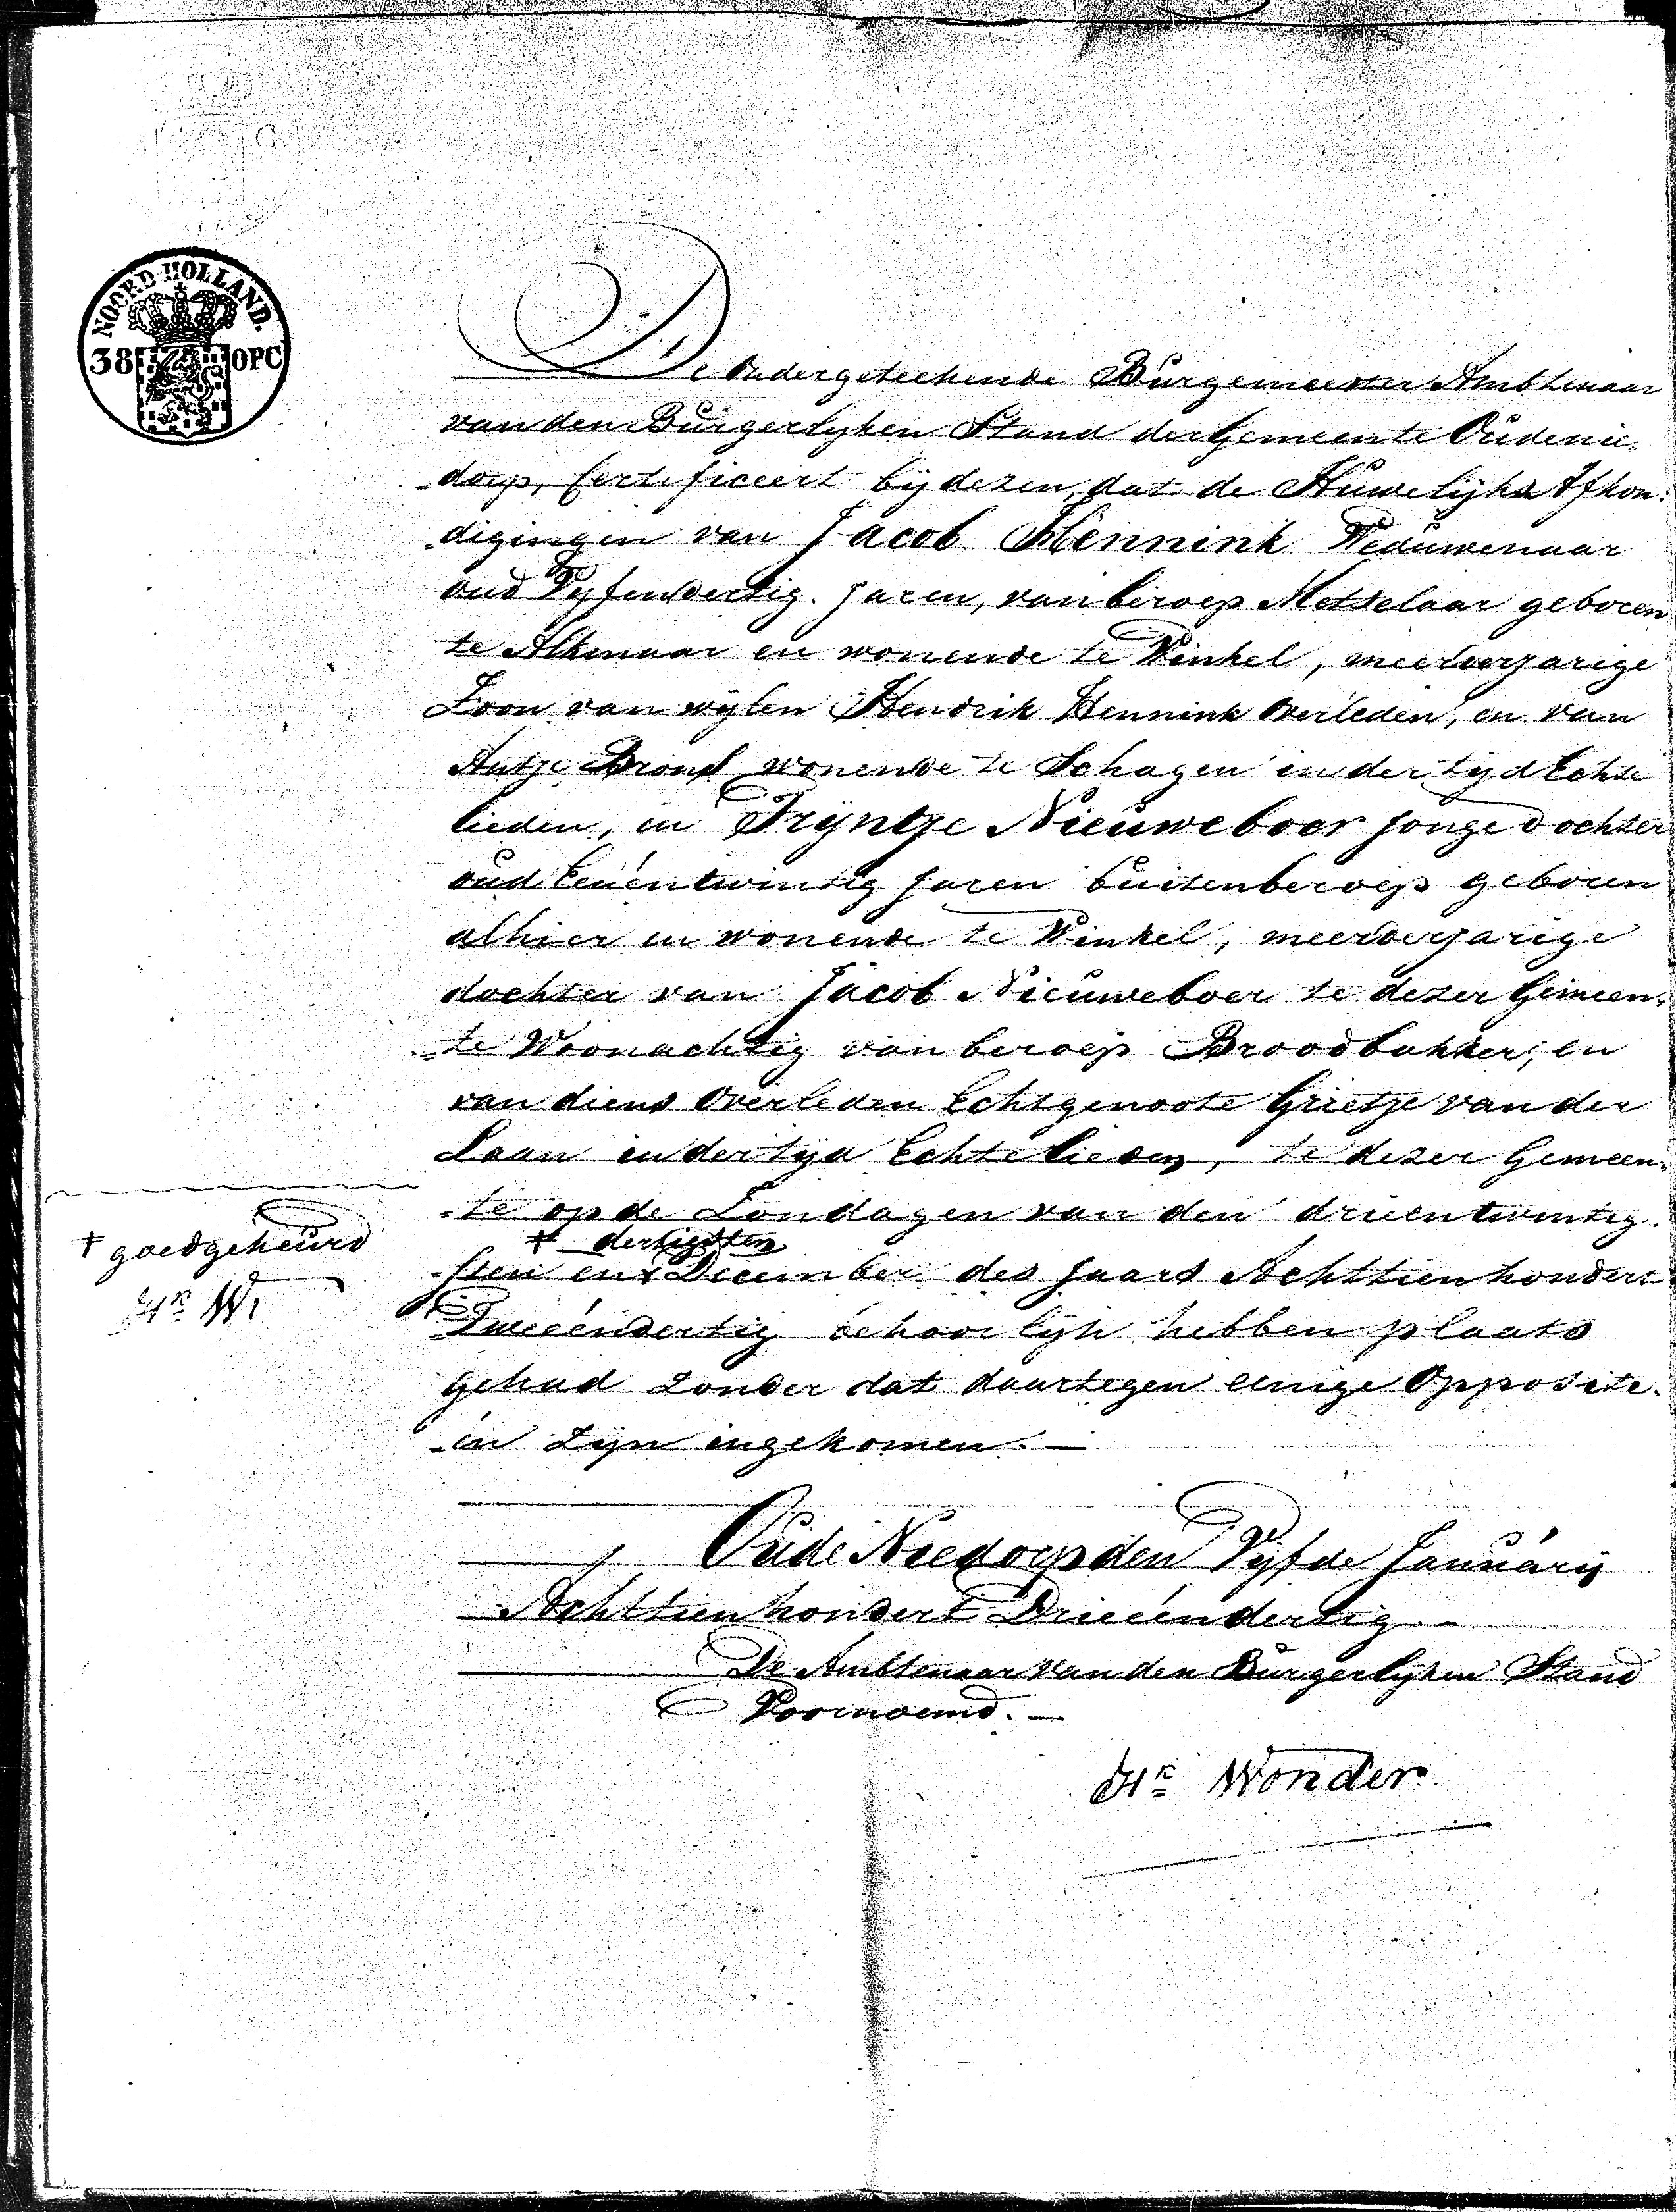 NOORD HOLLAND.
38 OPC
De Ondergeteekende Burgemeester Ambtenaar
van den Burgerlyken Stand der Gemeente Oudenie-
-dorp, Certificeert by dezen, dat de Huwelyks Afkon-
-digingen van Jacob Hennink Weduwenaar
oud Vyfendertig Jaren, van beroep Metselaar geboren
te Alkmaar en wonende te Winkel, meerderjarige
Zoon van wylen Hendrik Hennink overleden, en van
Antje wonende te Schagen in der tyd Echte
lieden, en Tryntje Nieuweboer Jonge dochter
oud Eenéntwintig Jaren buitenberoep geboren
alhier en wonende te Winkel, meerderjarige
dochter van Jacob Nieuweboer te dezer Gemeen-
-te Woonachtig van beroep Broodbakker, en
van diens overleden Echtgenoote Grietje van der
Laan in der tyd Echte lieden, te dezer Gemeen-
-te op de Zondagen van den drieentwintig-
† dertigsten
-sten en † December des Jaars Achttienhondert
Tweeéndertig behoorlyk hebben plaats
gehad zonder dat daartegen eenige Oppositi-
-ën zyn ingekomen. —
† goedgekeurd
Hk W.
Oude Niedorp den Vyfde January
Achttienhondert Drieéndertig —
De Ambtenaar van den Burgerlyken Stand
Voornoemd. —
Hk Wonder